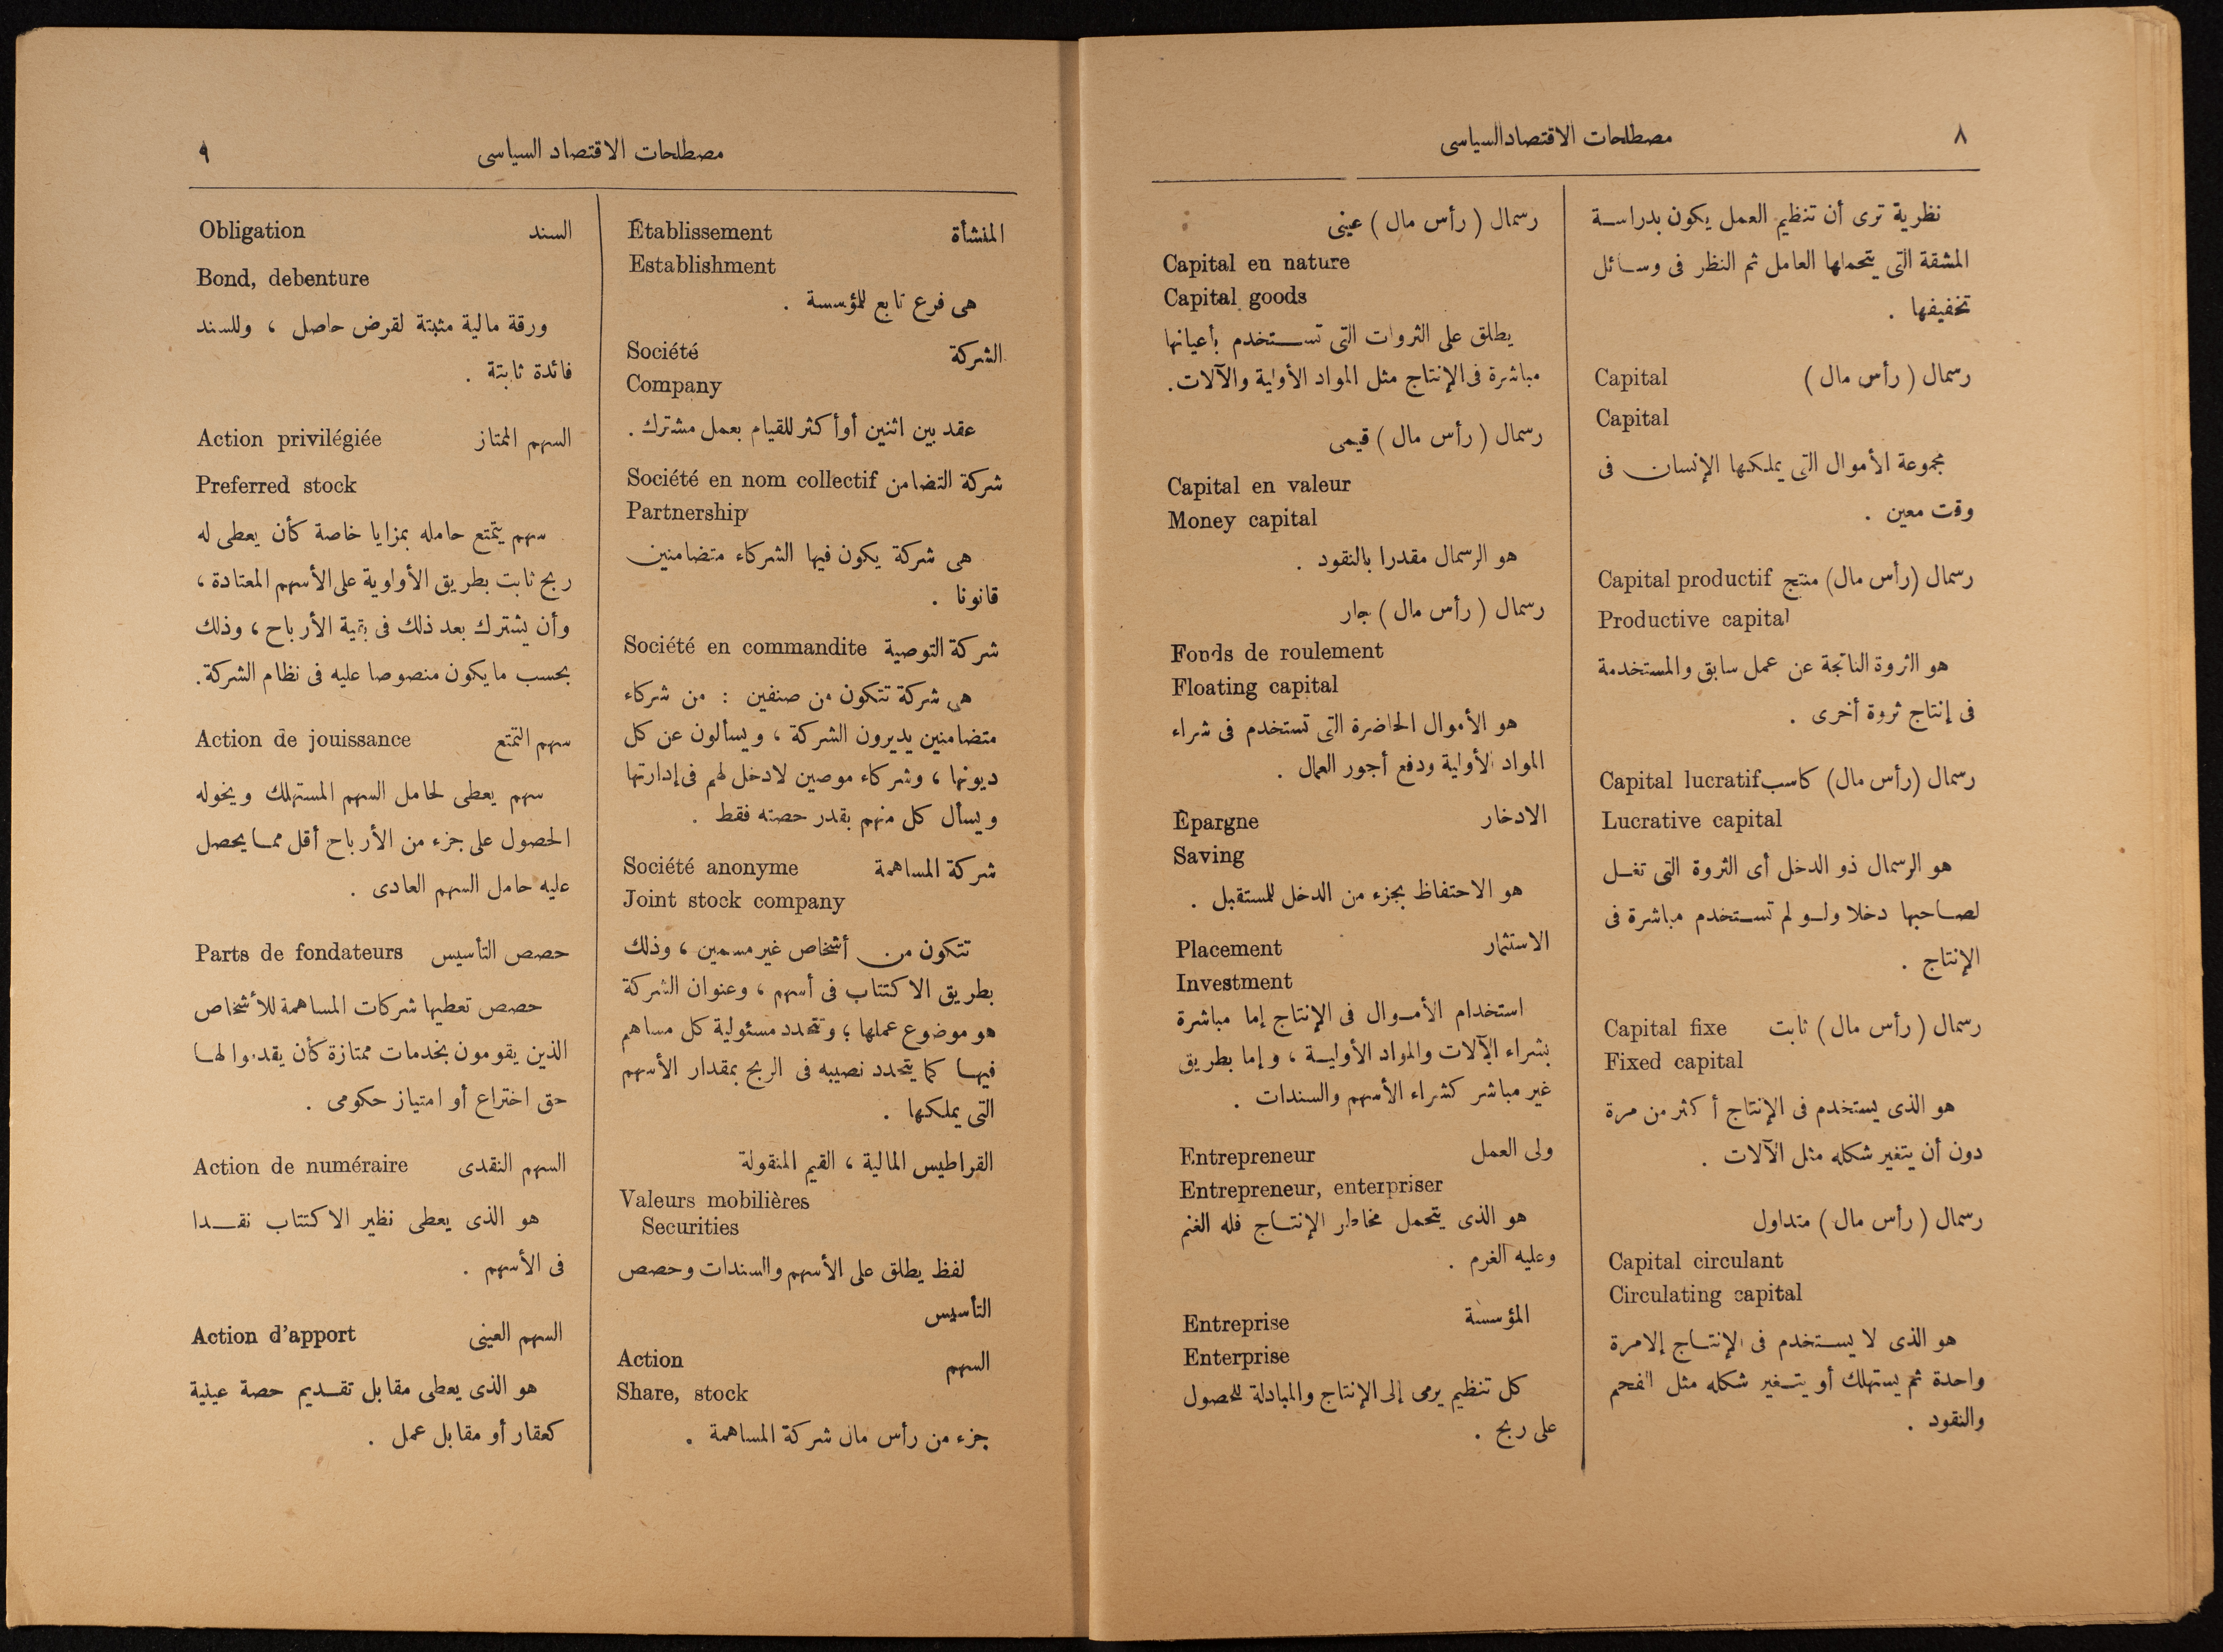 ٨
مصطلحات الاقتصاد السياسى
نظرية ترى أن تنظيم العمل يكون بدراسة
المشقة التى يتحملها العامل ثم النظر فى وسائل
تخفيفها .
رسمال ( رأس مال ) Capital
Capital
مجموعة الأموال التى يملكها الإنسان فى
وقت معين .
رسمال (رأس مال) منتج Capital productif
Productive capital
هو الثروة الناتجة عن عمل سابق والمستخدمة
فى إنتاج ثروة أخرى .
رسمال (رأس مال) كاسب Capital lucratif
Lucrative capital
هو الرسمال ذو الدخل أى الثروة التى تغل
لصاحبها دخلا ولو لم تستخدم مباشرة فى
الإنتاج .
رسمال ( رأس مال ) ثابت Capital fixe
Fixed capital
هو الذى يستخدم فى الإنتاج أكثر من مرة
دون أن يتغير شكله مثل الآلات .
رسمال ( رأس مال ) متداول
Capital circulant
Circulating capital
هو الذى لا يستخدم فى الإنتاج إلا مرة
واحدة ثم يستهلك أو يتغير شكله مثل الفحم
والنقود .
رسمال ( رأس مال ) عينى
Capital en nature
Capital goods
يطلق على الثروات التى تستخدم بأعيانها
مباشرة فى الإنتاج مثل المواد الأولية والآلات .
رسمال ( رأس مال ) قيمى
Capital en valeur
Money capital
هو الرسمال مقدرا بالنقود .
رسمال ( رأس مال ) جار
Fonds de roulement
Floating capital
هو الأموال الحاضرة التى تستخدم فى شراء
المواد الأولية ودفع أجور العمال .
الادخار Epargne
Saving
هو الاحتفاظ بجزء من الدخل للمستقبل .
الاستثمار Placement
Investment
استخدام الأموال فى الإنتاج إما مباشرة
بشراء الآلات والمواد الأولية ، وإما بطريق
غير مباشر كشراء الأسهم والسندات .
ولى العمل Entrepreneur
Entrepreneur, enterpriser
هو الذى يتحمل مخاطر الإنتاج فله الغنم
وعليه الغرم .
المؤسسة Entreprise
Enterprise
كل تنظيم يرمى إلى الإنتاج والمبادلة للحصول
على ربح .
مصطلحات الاقتصاد السياسى
٩
المنشأة Etablissement
Establishment
هى فرع تابع للمؤسسة .
الشركة Société
Company
عقد بين اثنين أو أكثر للقيام بعمل مشترك .
شركة التضامن Société en nom collectif
Partnership
هى شركة يكون فيها الشركاء متضامنين
قانونا .
شركة التوصية Société en commandite
هى شركة تتكون من صنفين : من شركاء
متضامنين يديرون الشركة ، ويسألون عن كل
ديونها ، وشركاء موصين لا دخل لهم فى إدارتها
ويسأل كل منهم بقدر حصته فقط .
شركة المساهمة Société anonyme
Joint stock company
تتكون من أشخاص غير مسمين ، وذلك
بطريق الاكتتاب فى أسهم ، وعنوان الشركة
هو موضوع عملها ؛ وتتحدد مسئولية كل مساهم
فيها كما يتحدد نصيبه فى الربح بمقدار الأسهم
التى يملكها .
القراطيس المالية ، القيم المنقولة
Valeurs mobilières
Securities
لفظ يطلق على الأسهم والسندات وحصص
التأسيس
السهم Action
Share, stock
جزء من رأس مال شركة المساهمة .
السند Obligation
Bond, debenture
ورقة مالية مثبتة لقرض حاصل ، وللسند
فائدة ثابتة .
السهم الممتاز Action privilégiée
Preferred stock
سهم يتمتع حامله بمزايا خاصة كأن يعطى له
ربح ثابت بطريق الأولوية على الأسهم المعتادة ،
وأن يشترك بعد ذلك فى بقية الأرباح ، وذلك
بحسب ما يكون منصوصا عليه فى نظام الشركة .
سهم التمتع Action de jouissance
سهم يعطى لحامل السهم المستهلك ويخوله
الحصول على جزء من الأرباح أقل مما يحصل
عليه حامل السهم العادى .
حصص التأسيس Parts de fondateurs
حصص تعطيها شركات المساهمة للأشخاص
الذين يقومون بخدمات ممتازة كأن يقدموا لها
حق اختراع أو امتياز حكومى .
السهم النقدى Action de numéraire
هو الذى يعطى نظير الاكتتاب نقدا
فى الأسهم .
السهم العينى Action d'apport
هو الذى يعطى مقابل تقديم حصة عينية
كعقار أو مقابل عمل .